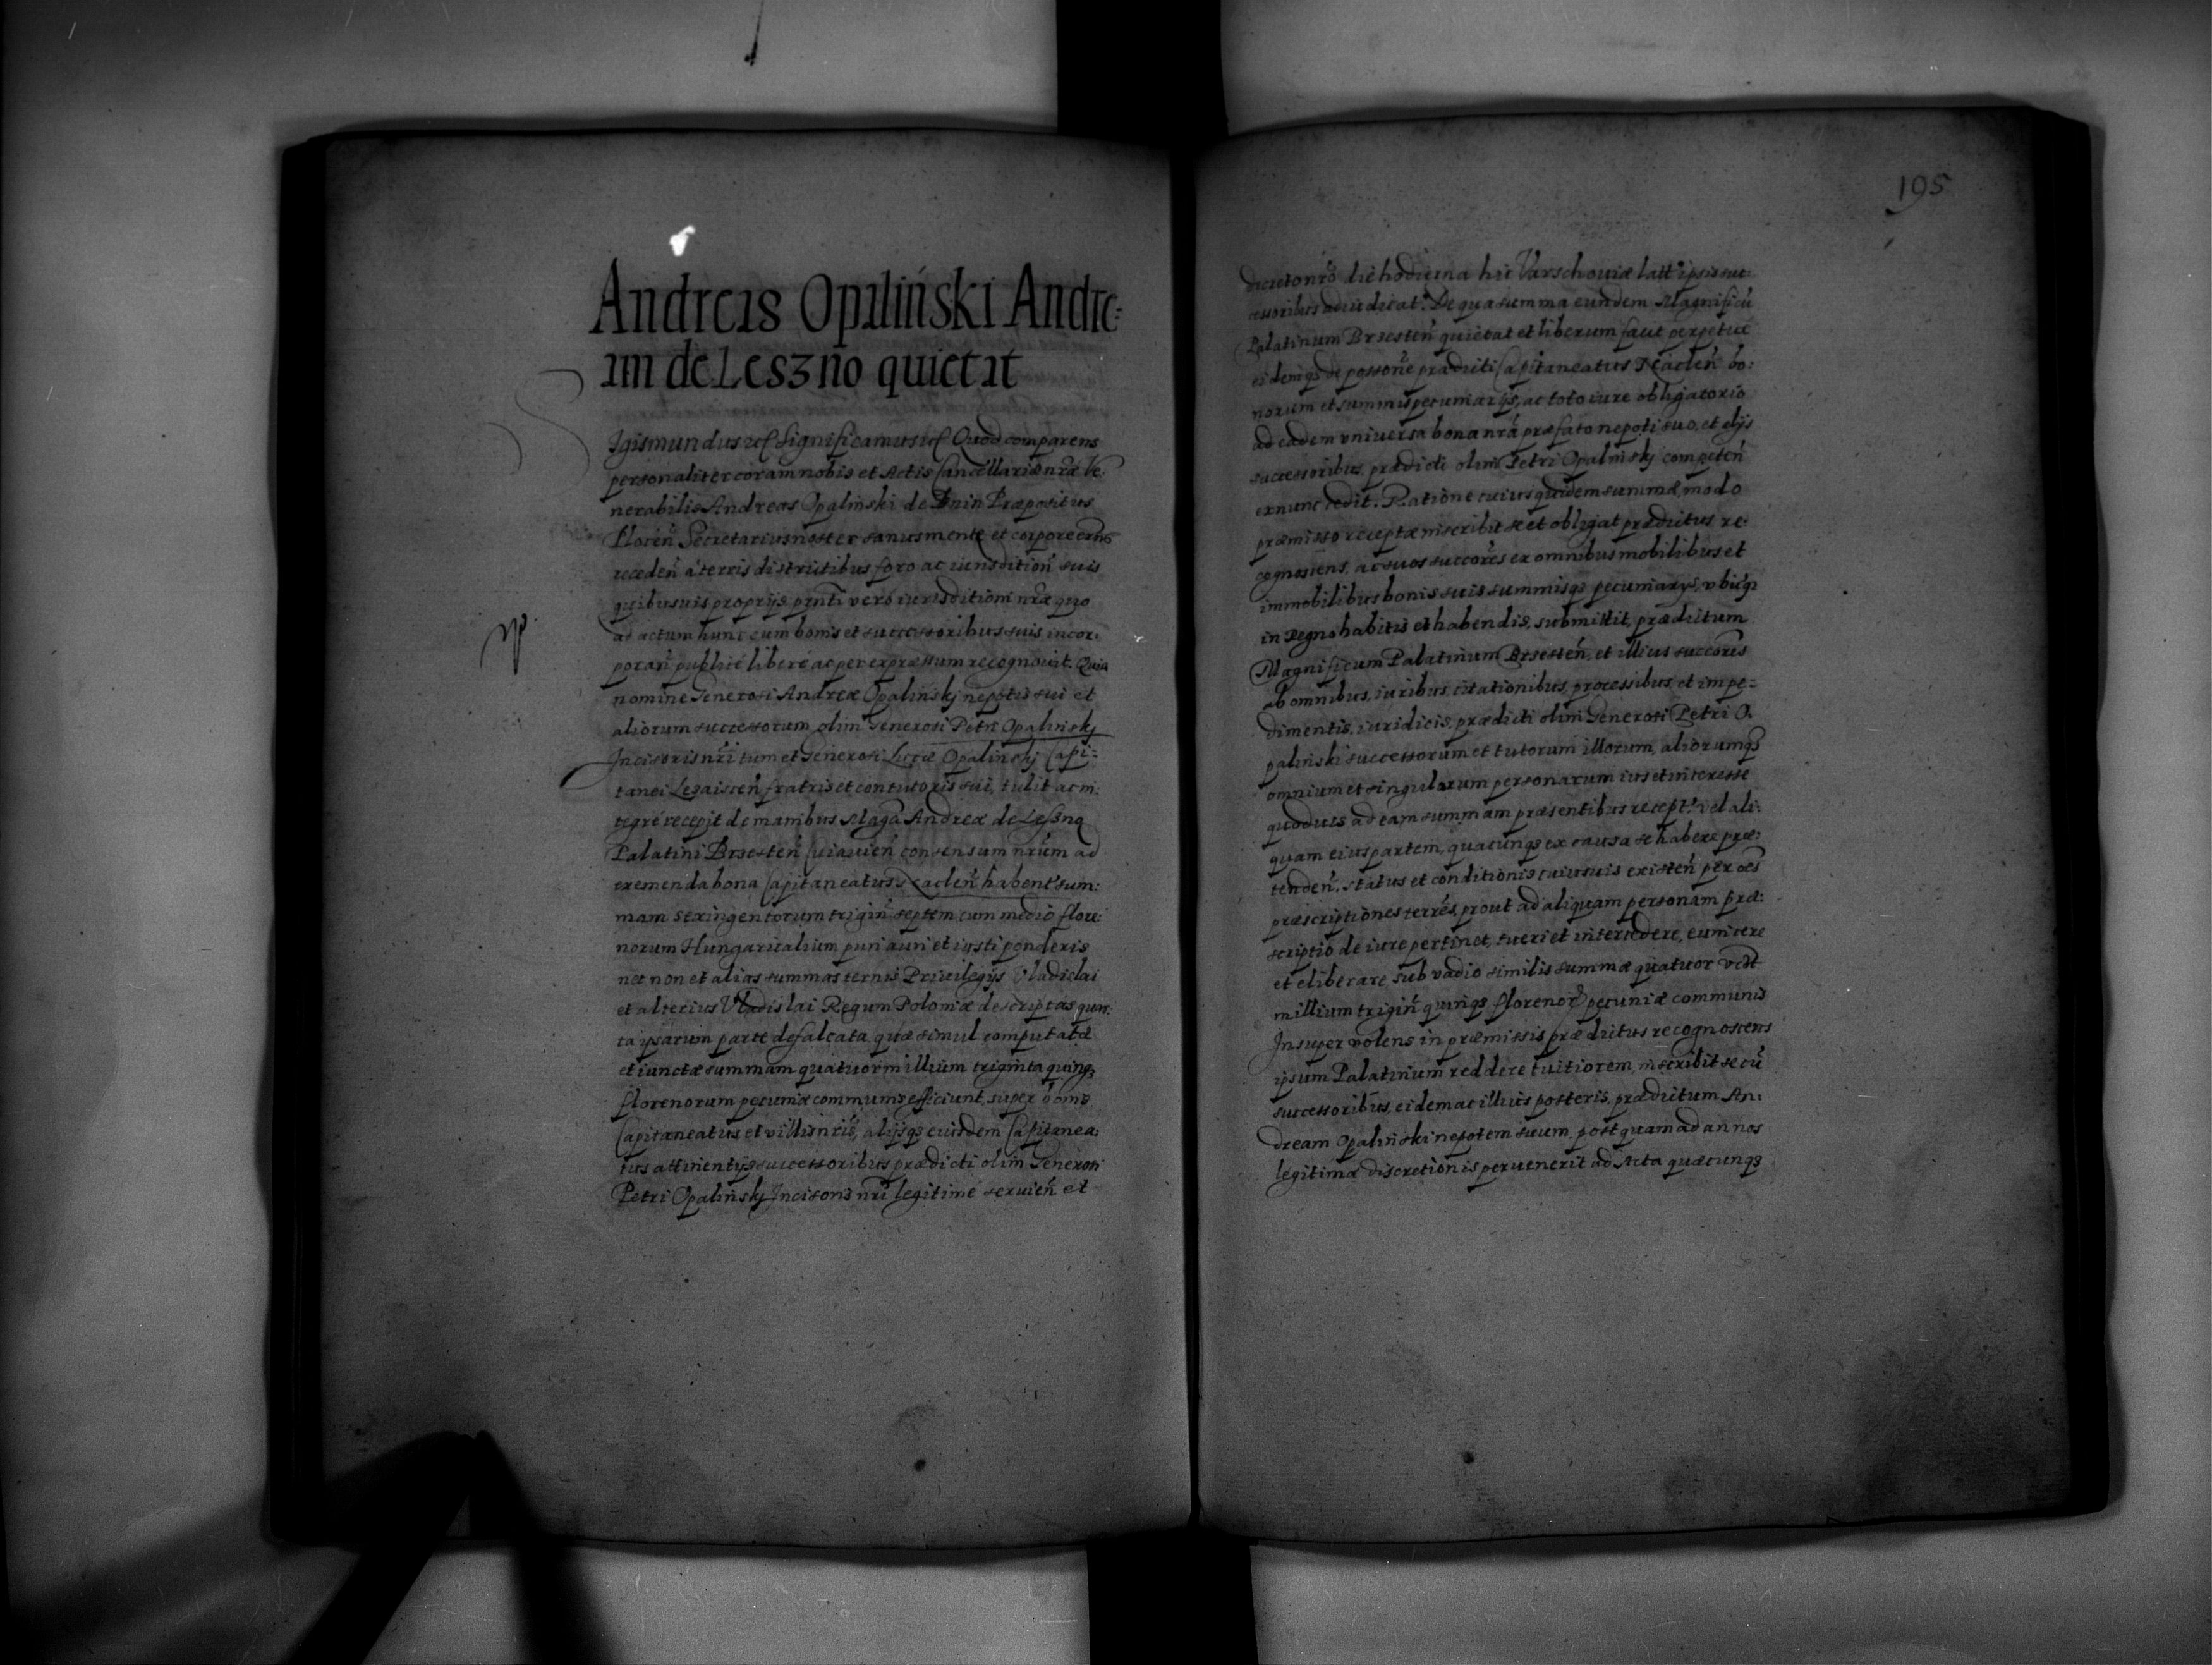 Andreas Opaliński Andre:
am de Leszno quietat
Sigismundus etc Significamus etc Quod comparens
personaliter coram nobis et Actis Cancellariæ nr̃æ Ve:
nerabilis Andreas Opalinski de Bnin Præpositus
Plocen̄ Secretarius noster sanus mente et corpore exn̄s
receden̄ à terris districtibus foro ac iurisdition̄ suis
quibusuis proprijs pn̄ti vero iurisditioni nr̃æ quo
ad actum hunc cum bonis et successoribus suis incor:
poran̄ publicè liberè ac per expræssum recognouit. Quia
nomine Generosi Andreæ Opalinskj nepotis sui et
aliorum successorum olim Generosi Petri Opalinskj
Incisoris nr̃i tum et Generosi Lucæ Opalinskj Capi:
tanei Lezaiscen̄ fratris et contutoris sui, tulit ac in:
tegrè recepit de manibus Magci Andreæ de Leszno
Palatini Brzesten̄ Cuiauien̄ consensum nr̃um ad
exemenda bona Capitaneatus Naclen̄ haben̄ sum:
mam sexingentorum trigin̄ septem cum medio flore:
norum Hungaricalium puri auri et iusti ponderis
nec non et alias summas ternis Priuilegijs Vladiclai
et alterius Vladislai Regum Poloniæ descriptas quar:
ta ipsarum parte defalcata, quæ simul computatæ
et iunctæ summam quatuor millium triginta quinq3
florenorum pecuniæ communis efficiunt, super bonis
Capitaneatus et villis nr̃is, alijsq3 eiusdem Capitanea:
tus attinentijs successoribus prædicti olim Generosi
Petri Opalinskj Incisoris nr̃i legitimè seruien̄ et
195
decreto nr̃o die hodierna hic Varschouiæ lat̄ ipsis suc:
cessoribus adiudicat. De qua summa eundem Magnificū
Palatinum Brzesten̄ quietat et liberum facit perpetuè
eidemq3 de posson̄e prædicti Capitaneatus Naclen̄ bo:
norum et summis pecuniarijs, ac toto iure obligatorio
ad eadem vniversa bona nr̃a præfato nepoti suo, et alijs
successoribus prædicti olim Petri Opalinskj competen̄
exnunc cedit. Ratione cuiusquidem summæ, modo
præmisso receptæ inscribit se et obligat prædictus re:
cognoscens, ac suos succores ex omnibus mobilibus et
immobilibus bonis suis summisq3 pecuniarys, vbiq3
in Regno habitis et habendis, submittit, prædictum
Magnificum Palatinum Brzesten̄, et illius succores
ab omnibus, iuribus, citationibus, processibus, et impe:
dimentis, iuridicis, prædicti olim Generosi Petri O:
palinski successorum et tutorum illorum, aliorumq3
omnium et singularum personarum ius et interesse
quoduis ad eam summam præsentibus recept̄ vel ali:
quam eius partem, quacunq3 ex causa se habere præ:
tenden̄. status et conditionis cuiusuis existen̄ per oēs
præscriptiones terrēs, prout ad aliquam personam præ:
scriptio de iure pertinet, tueri et intercedere, euincere
et eliberare sub vadio similis summæ quatuor
millium trigin̄ quinq3 florenor̄ pecuniæ communis
Insuper volens in præmissis prædictus recognoscens
ipsum Palatinum reddere tuitiorem, inscribit se cū
successoribus, eidem ac illius posteris, prædictum An:
dream Opalinski nepotem suum, postquam ad annos
legitimæ discretionis peruenerit ad Acta quæcunq3